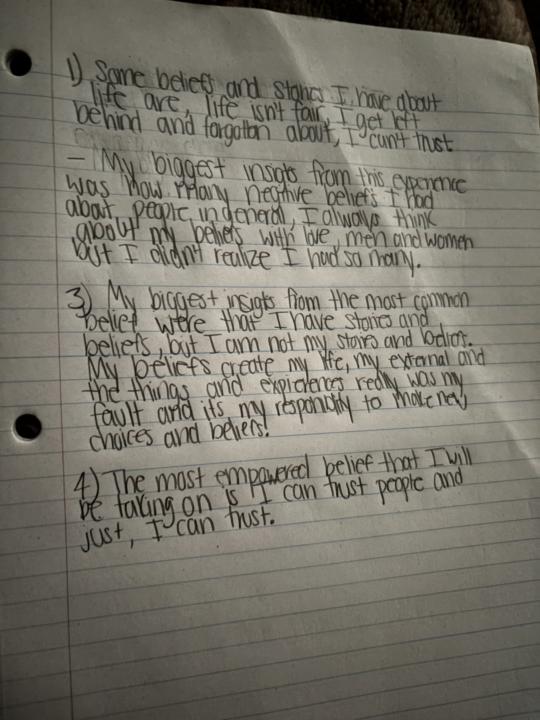 1) Some beliefs and stories I have about
life are, life isn't fair, I get left
behind and forgotton about, I can't trust
- My biggest insigts from this experence
was how many negtive beliefs I had
about people in general, I always think
about my beliefs with love, men and women
but I didn't realize I had so many.
3) My biggest insigts from the most common
belief were that I have stories and
beliefs, but I am not my stories and beliefs.
My beliefs create my life, my external and
the things and expirences really was my
fault and its my responsity to make new
choices and beliefs!
4) The most empowered belief that I will
be taking on is "I can trust people and
just, I can trust.